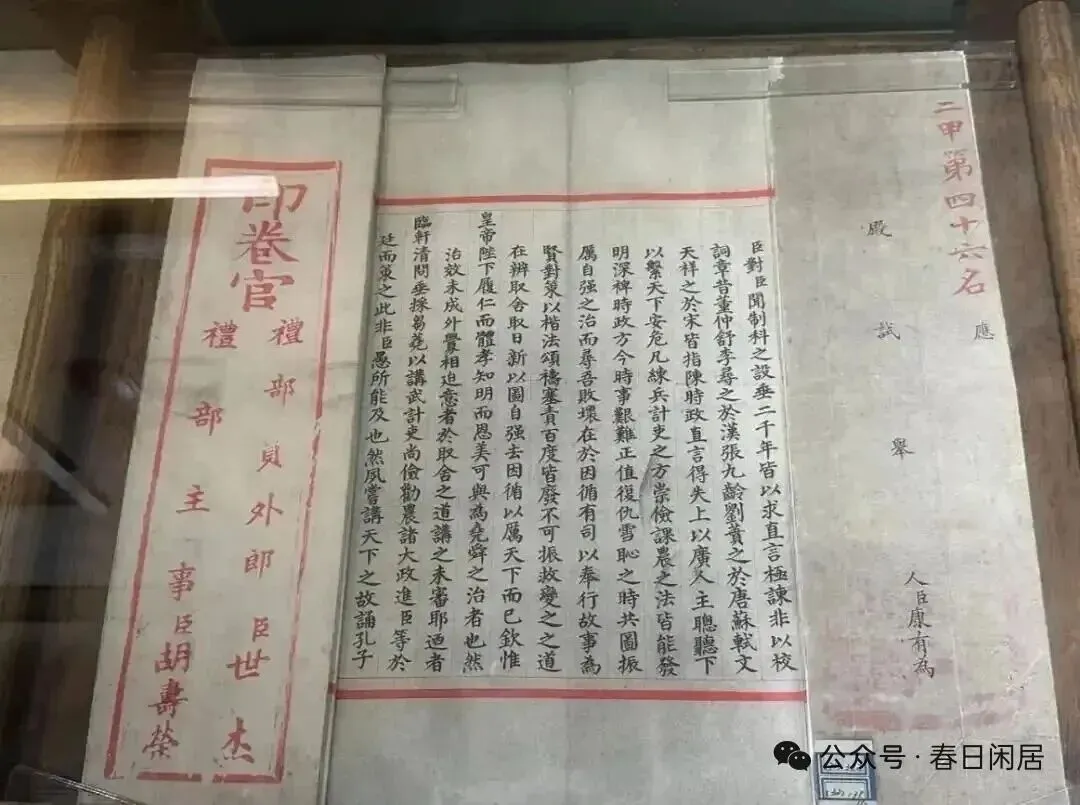 二甲第四十六名
應
殿試舉人臣康有為
臣對臣聞制科之設垂二千年皆以求直言極諫非以校
詞章昔董仲舒李尋之於漢張九齡劉蕡之於唐蘇軾文
天祥之於宋皆指陳時政直言得失上以廣人主聰聽下
以繫天下安危凡練兵計吏之方崇儉課農之法皆能發
明深裨時政方今時事艱難正值復仇雪恥之時共圖振
厲自强之治而尋吾敗壞在於因循有司以奉行故事為
賢對策以楷法頌禱塞責百度皆廢不可振救變之之道
在辨取舍取日新以圖自强去因循以厲天下而已欽惟
皇帝陛下履仁而體孝知明而恩美可與為堯舜之治者也然
治效未成外釁相迫意者於取舍之道講之未審耶迺者
臨軒清問垂採芻蕘以講武計吏尚儉勸農諸大政進臣等於
廷而策之此非臣愚所能及也然夙嘗講天下之故誦孔子
印卷官
禮部員外郎臣世杰
禮部主事臣胡壽榮
公众号·春日闲居